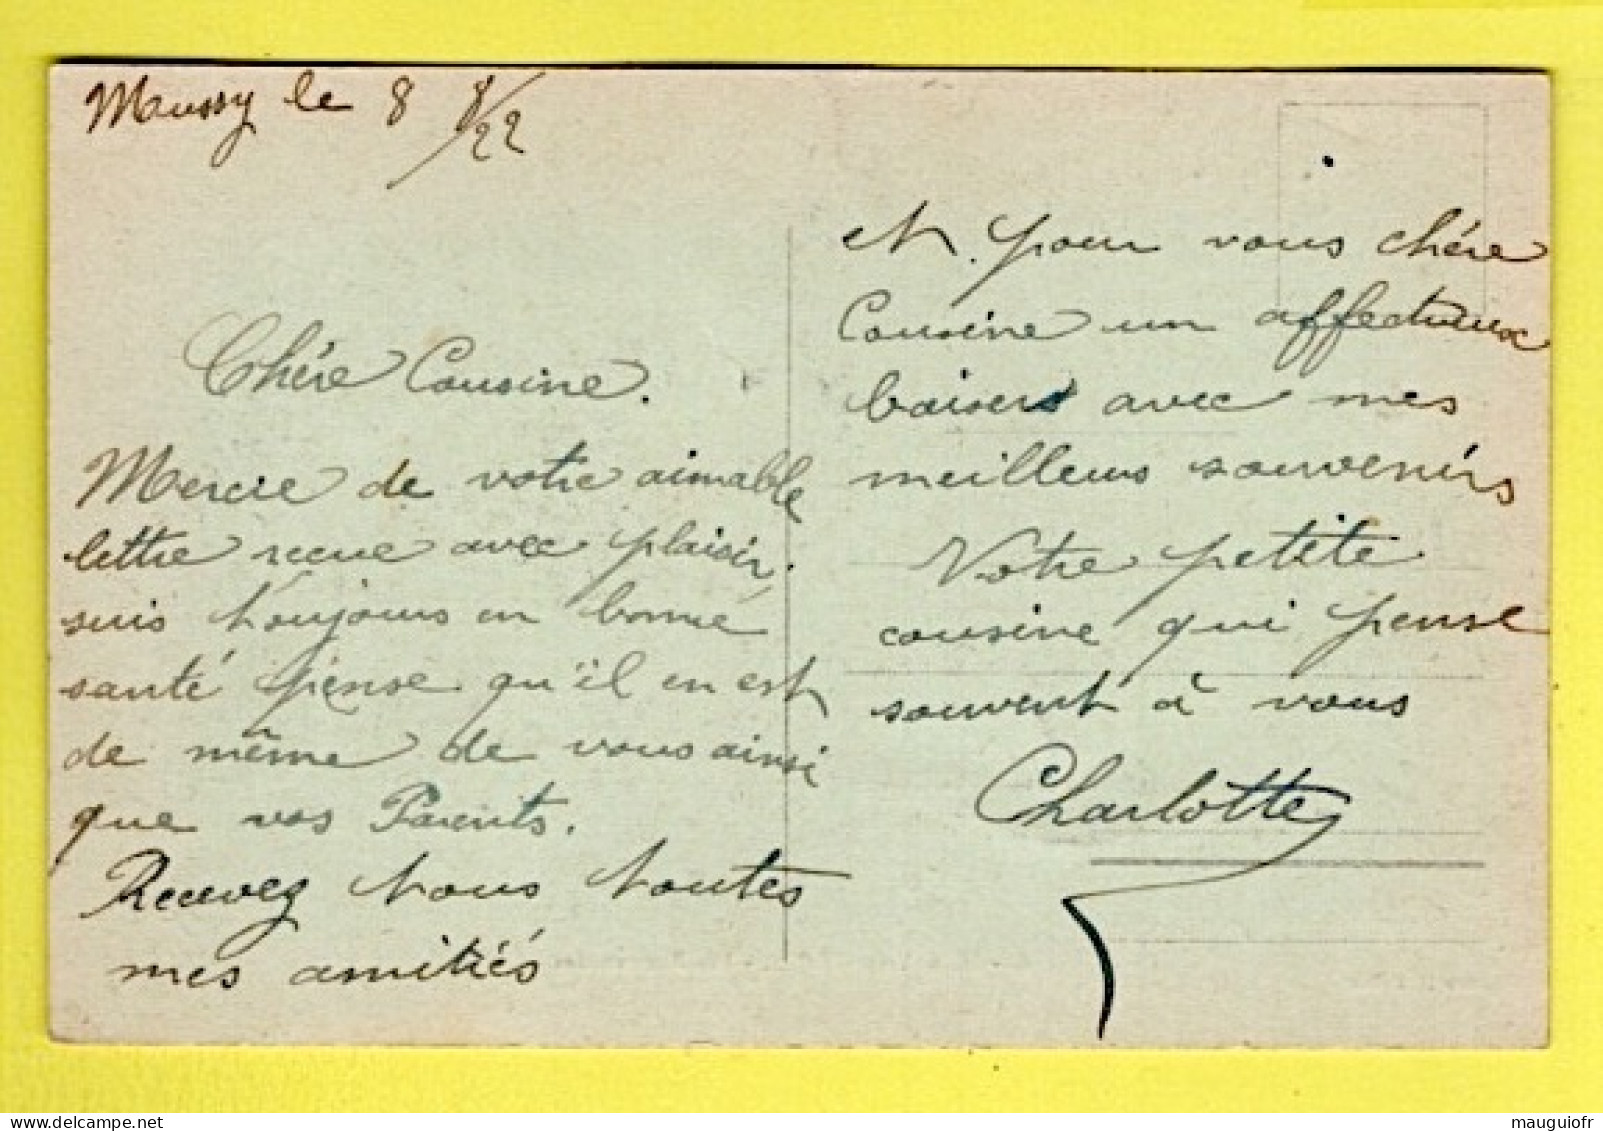 Mussy le 8 8/22
Chére Cousine.
Mercie de votre aimable
lettre recue avec plaisir.
suis toujours en bonne
santé pense qu'il en est
de même de vous ainsi
que vos Parents.
Recevez tous toutes
mes amitiés
et. pour vous chére
Cousine un affectueux
baisers avec mes
meilleurs souvenirs
Votre petite
cousine qui pense
souvent à vous
Charlotte
mauguiofr